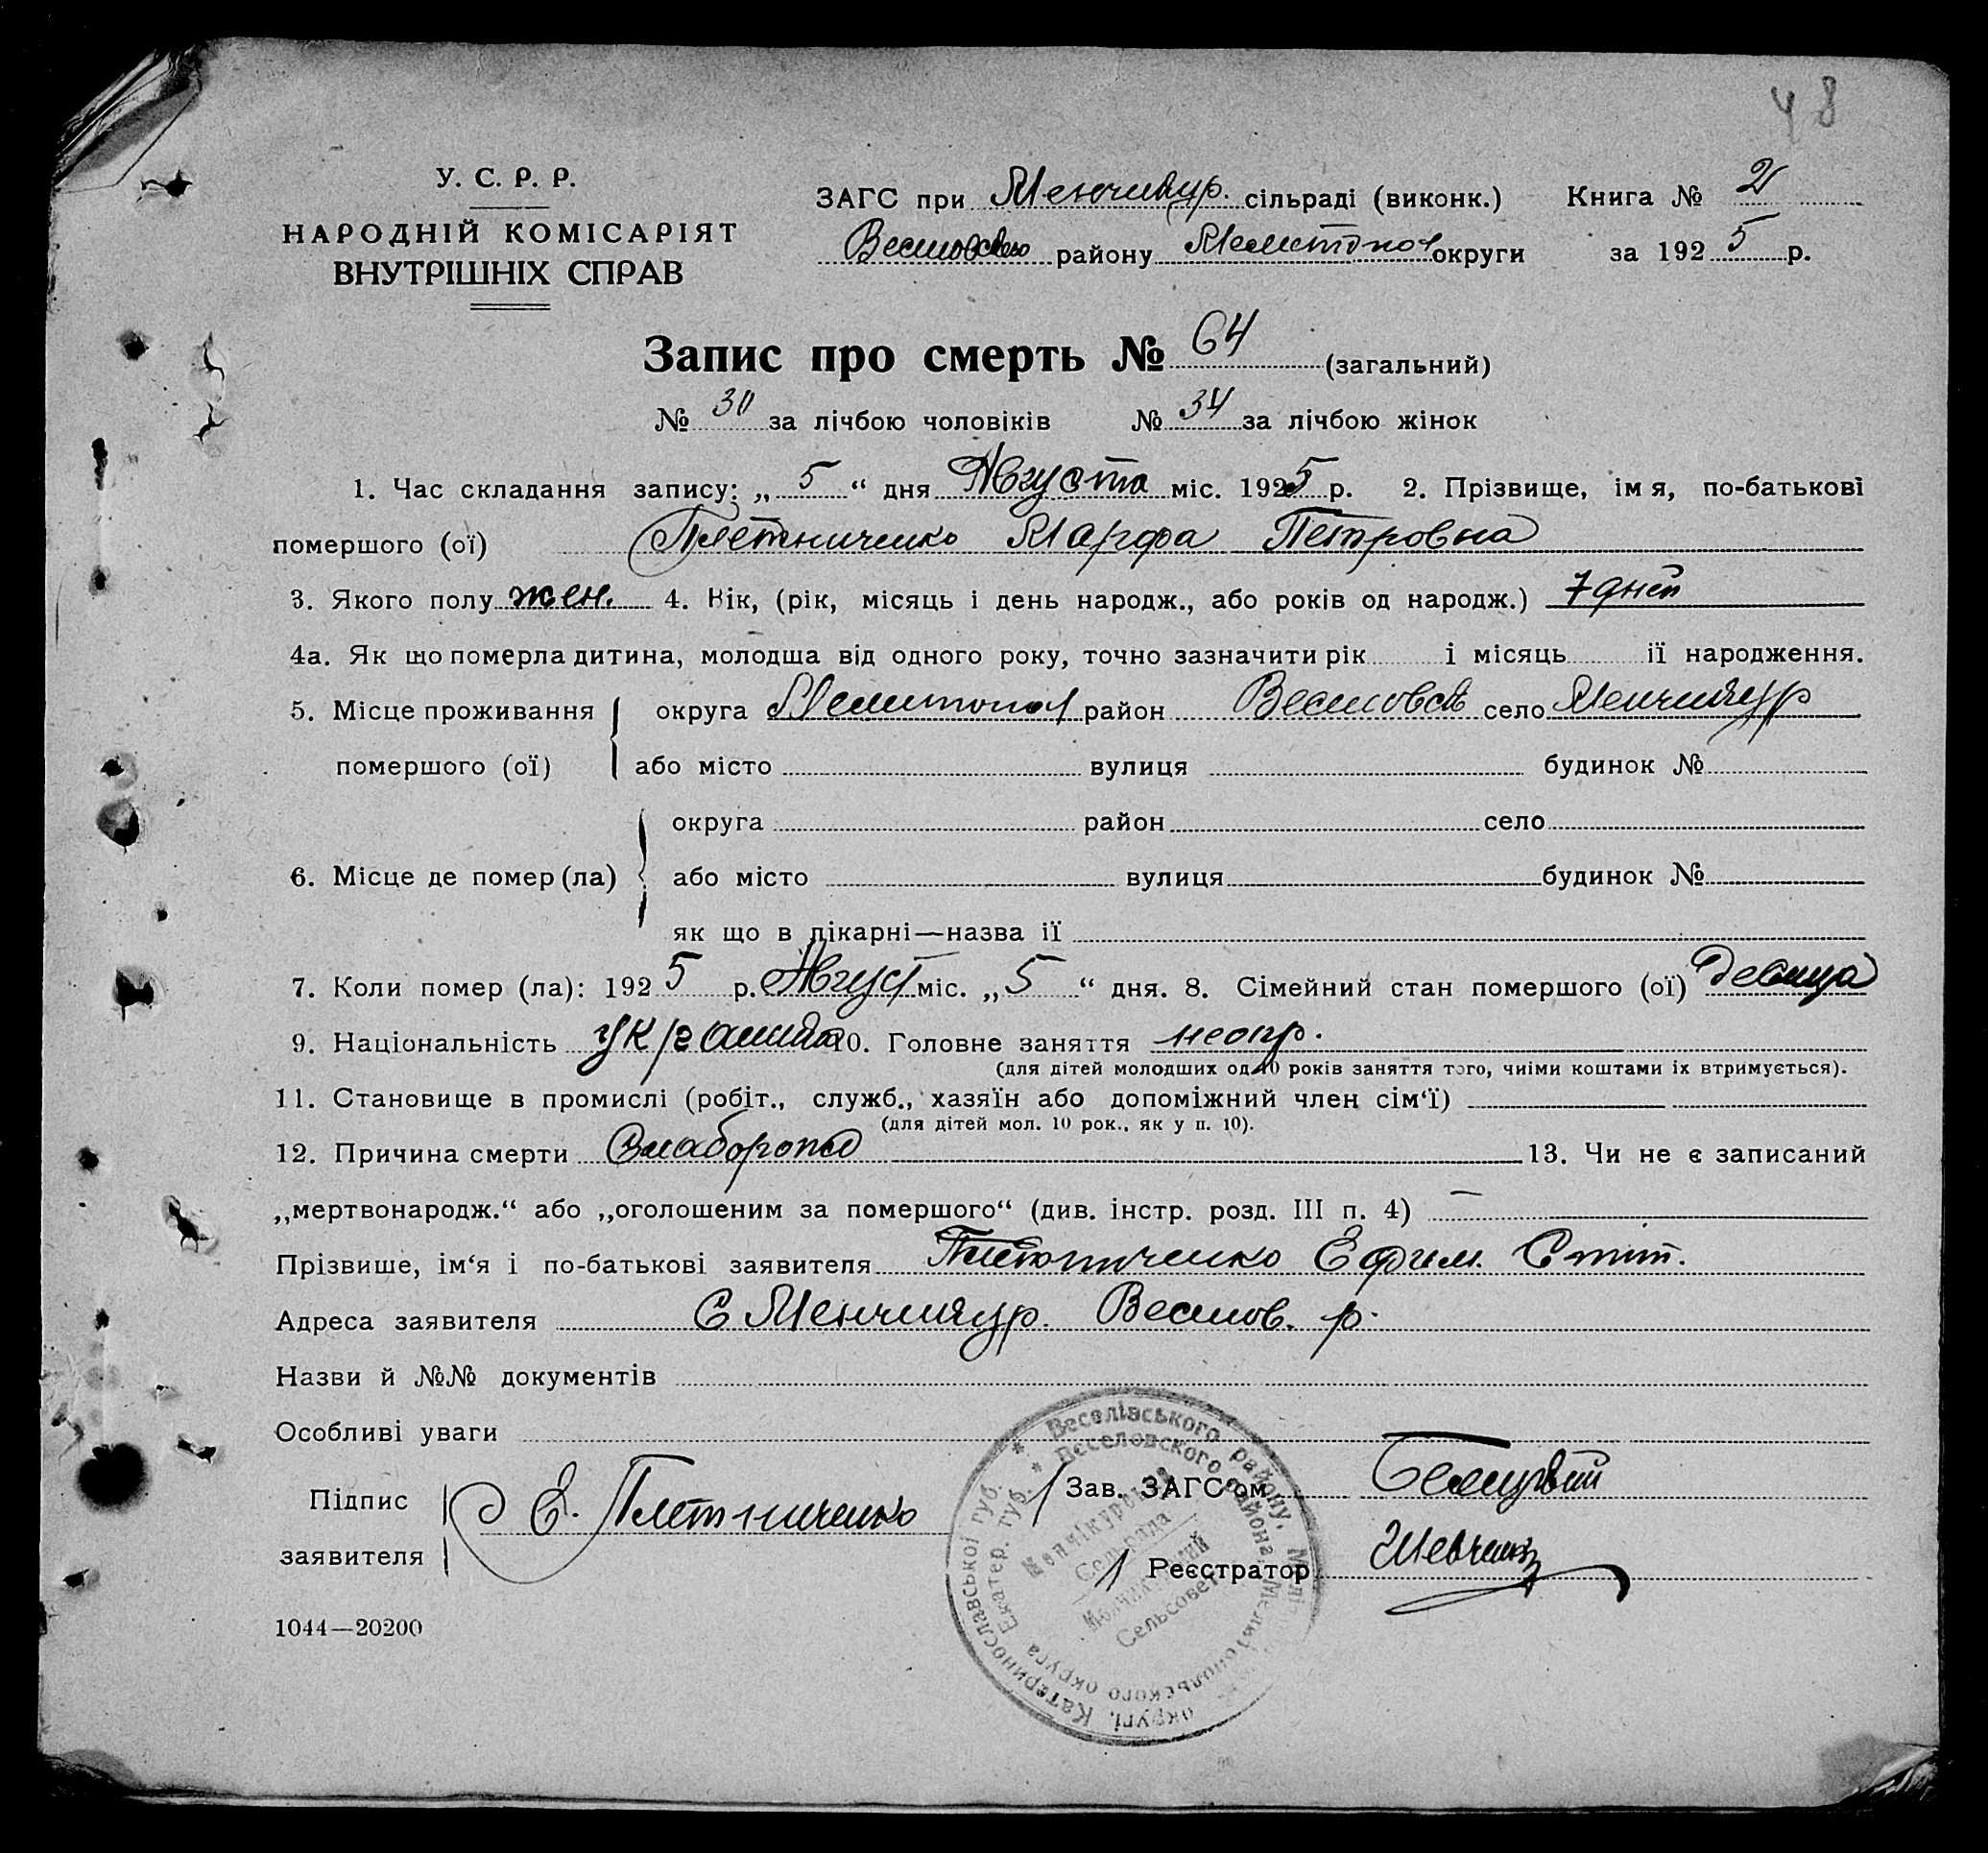 48
У. С. Р. Р.
НАРОДНІЙ КОМІСАРІЯТ
ВНУТРІШНІХ СПРАВ
ЗАГС при Менчикур. сільраді (виконк.) Книга № 2
Веселовского району Мелитопол округи за 1925 р.
Запис про смерть № 64 (загальний)
№ 30 за лічбою чоловіків № 34 за лічбою жінок
1. Час складання запису: „ 5 “ дня Августа міс. 1925 р. 2. Прізвище, імя, по-батькові
помершого (ої) Плетниченко Марфа Петровна
3. Якого полу жен. 4. Вік, (рік, місяць і день народж., або років од народж.) 7 дней
4а. Як що померла дитина, молодша від одного року, точно зазначити рік і місяць її народження.
5. Місце проживання округа Мелитопол район Веселовск село Менчикур
помершого (ої) або місто вулиця будинок №
округа район село
6. Місце де помер (ла) або місто вулиця будинок №
як що в лікарні—назва ії
7. Коли помер (ла): 1925 р. Август міс. „ 5 “ дня. 8. Сімейний стан помершого (ої) девица
9. Національність украинка 10. Головне заняття неопр.
(для дітей молодших од 10 років заняття того, чиїми коштами їх втримується).
11. Становище в промислі (робіт., служб., хазяїн або допоміжний член сім‘ї)
(для дітей мол. 10 рок., як у п. 10).
12. Причина смерти 13. Чи не є записаний
„мертвонародж.“ або „оголошеним за помершого“ (див. інстр. розд. III п. 4) —
Прізвише, ім‘я і по-батькові заявителя Плетниченко Ефим.
Адреса заявителя С Менчикур. Веселов. р.
Назви й №№ документів
Особливі уваги
Підпис
заявителя Е. Плетниченко
Зав. ЗАГС‘ом
Реєстратор Шевченко
* Веселівського району, округі, Катеринославської губ.
* Веселовского района Мелитопольского округа Екатер. губ.
Сельрада
Сельсовет
1044—20200